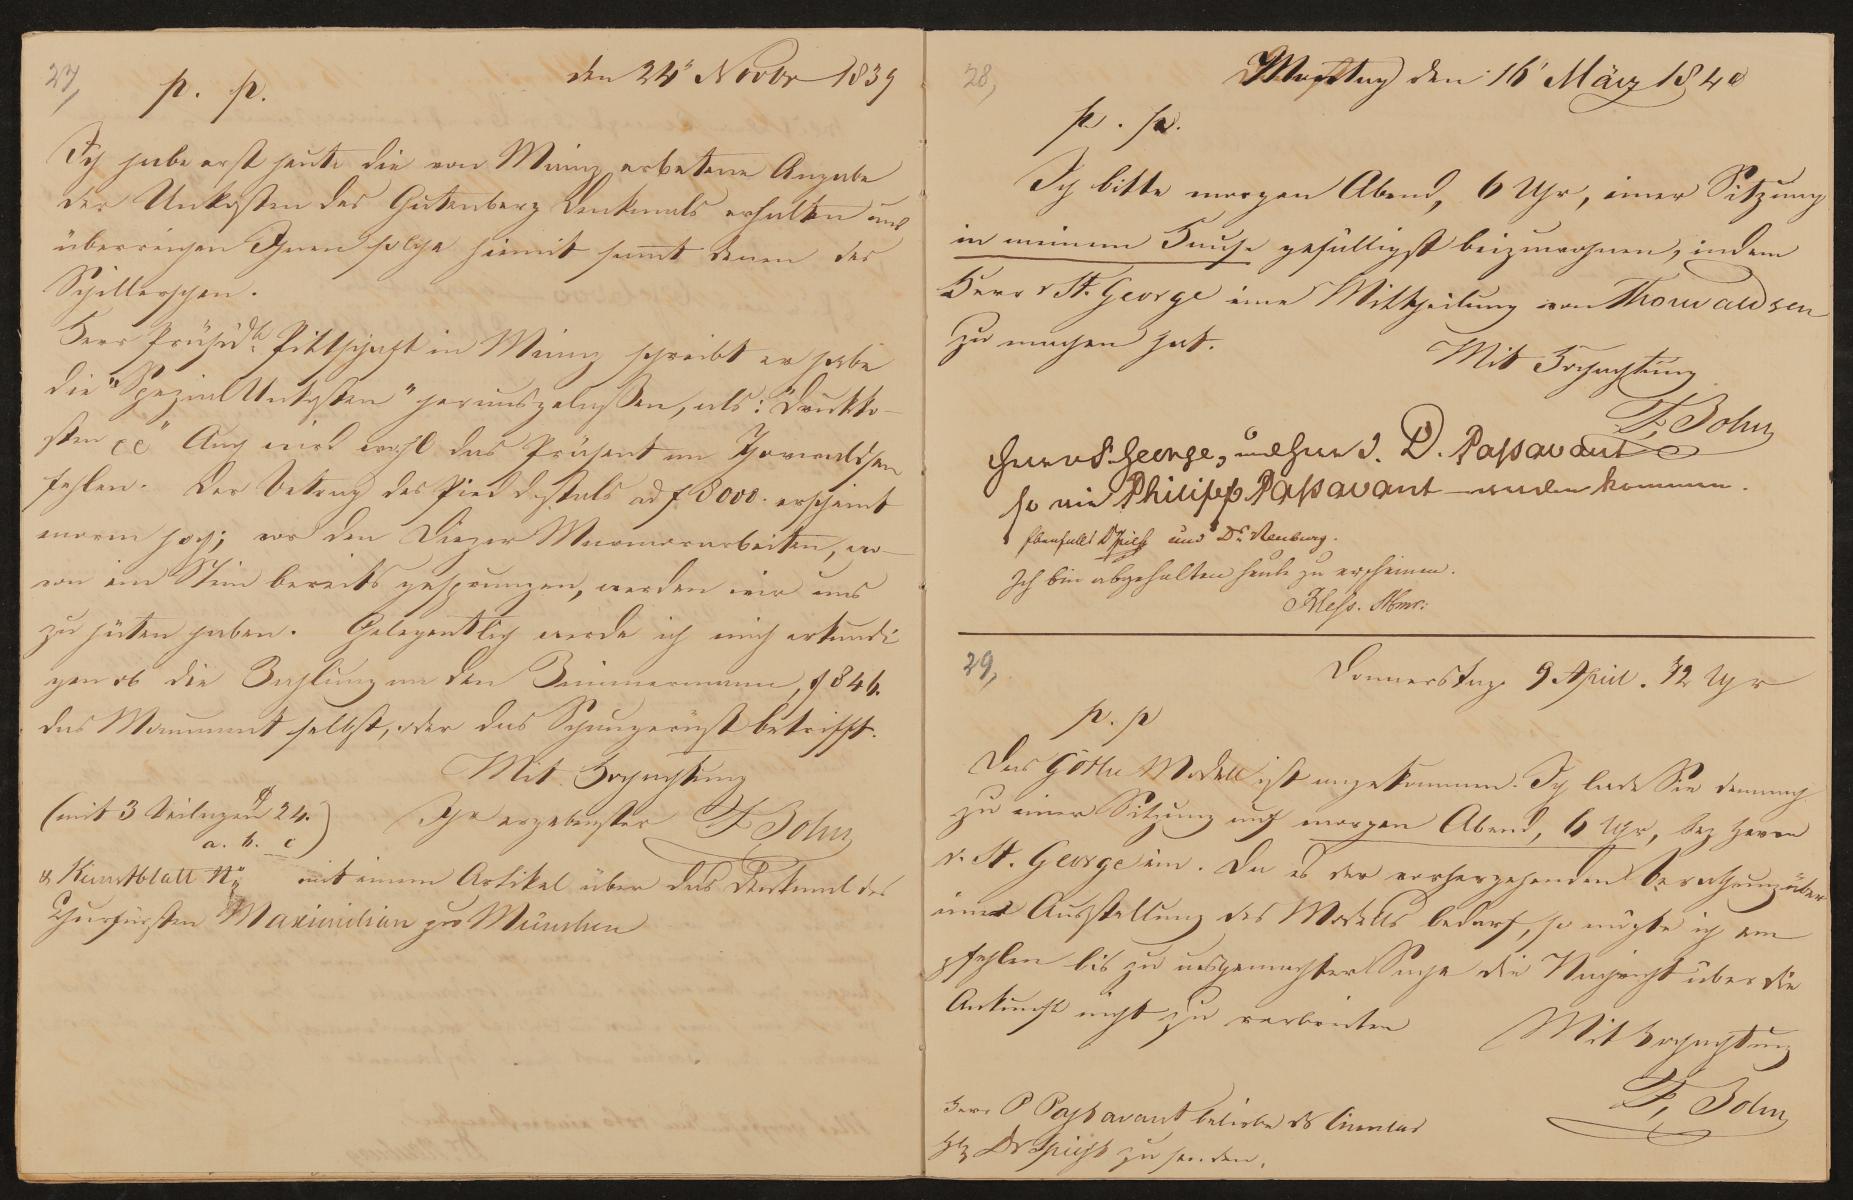 27,
p. p.
den 24' Novbr 1839
Ich habe erst heute die von Mainz erbetene Angabe
der Unkosten des Gutenberg Denkmals erhalten und
überreichen Ihnen solche hiemit sammt denen des
Schillerschen.
Herr Präsidt. Pittschaft in Mainz schreibt er habe
die "Spezial Unkosten" herausgelassen, als: "Druckko-
sten cc" Auch wird wohl das Präsent an Thorwaldsen
fehlen. Der Betrag des Piedestals ad f 8000. erscheint
enorm hoch; vor den Diezer Marmorarbeiten, wo-
von ein Stein bereits gesprungen, werden wir uns
zu hüten haben. Gelegentlich werde ich mich erkundi
gen ob die Zahlung an den Zimmermann, f 846.
das Monument selbst, oder das Schaugerüst betrifft.
Mit Hochachtung
(mit 3 Beilagen 24.)
a. b. c
Ihr ergebenster F. John
& Kunstblatt No mit einem Artikel über das Denkmal des
Churfürsten Maximilian zu München
28,
Montag den 16' März 1840
p. p.
Ich bitte morgen Abend, 6 Uhr, einer Sitzung
in meinem Hause gefälligst beizuwohnen, indem
Herr v St. George eine Mittheilung von Thorwaldsen
zu machen hat.
Mit Hochachtung
F. John
Herr v St. George, und Herr J. D. Passavant
so wie Philipp Passavant werden kommen.
Ebenfalls Dr Spiess und Dr. Neuburg.
Ich bin abgehalten heute zu erscheinen.
Hess.
29,
Donnerstag 9 April. 12 Uhr
p. p
Das Göthe Modell ist angekommen. Ich lade Sie demnach
zu einer Sitzung auf morgen Abend, 6 Uhr, bey Herrn
v. St. George ein. Da es der vorhergehenden Berathung über
eine Ausstellung des Modells bedarf, so mögte ich em
pfehlen bis zu ausgemachter Sache die Nachricht über die
Ankunft nicht zu verbreiten
Mit Hochachtung
F. John
Herr P Passavant beliebe das Circular
Dr Spiess zu senden.